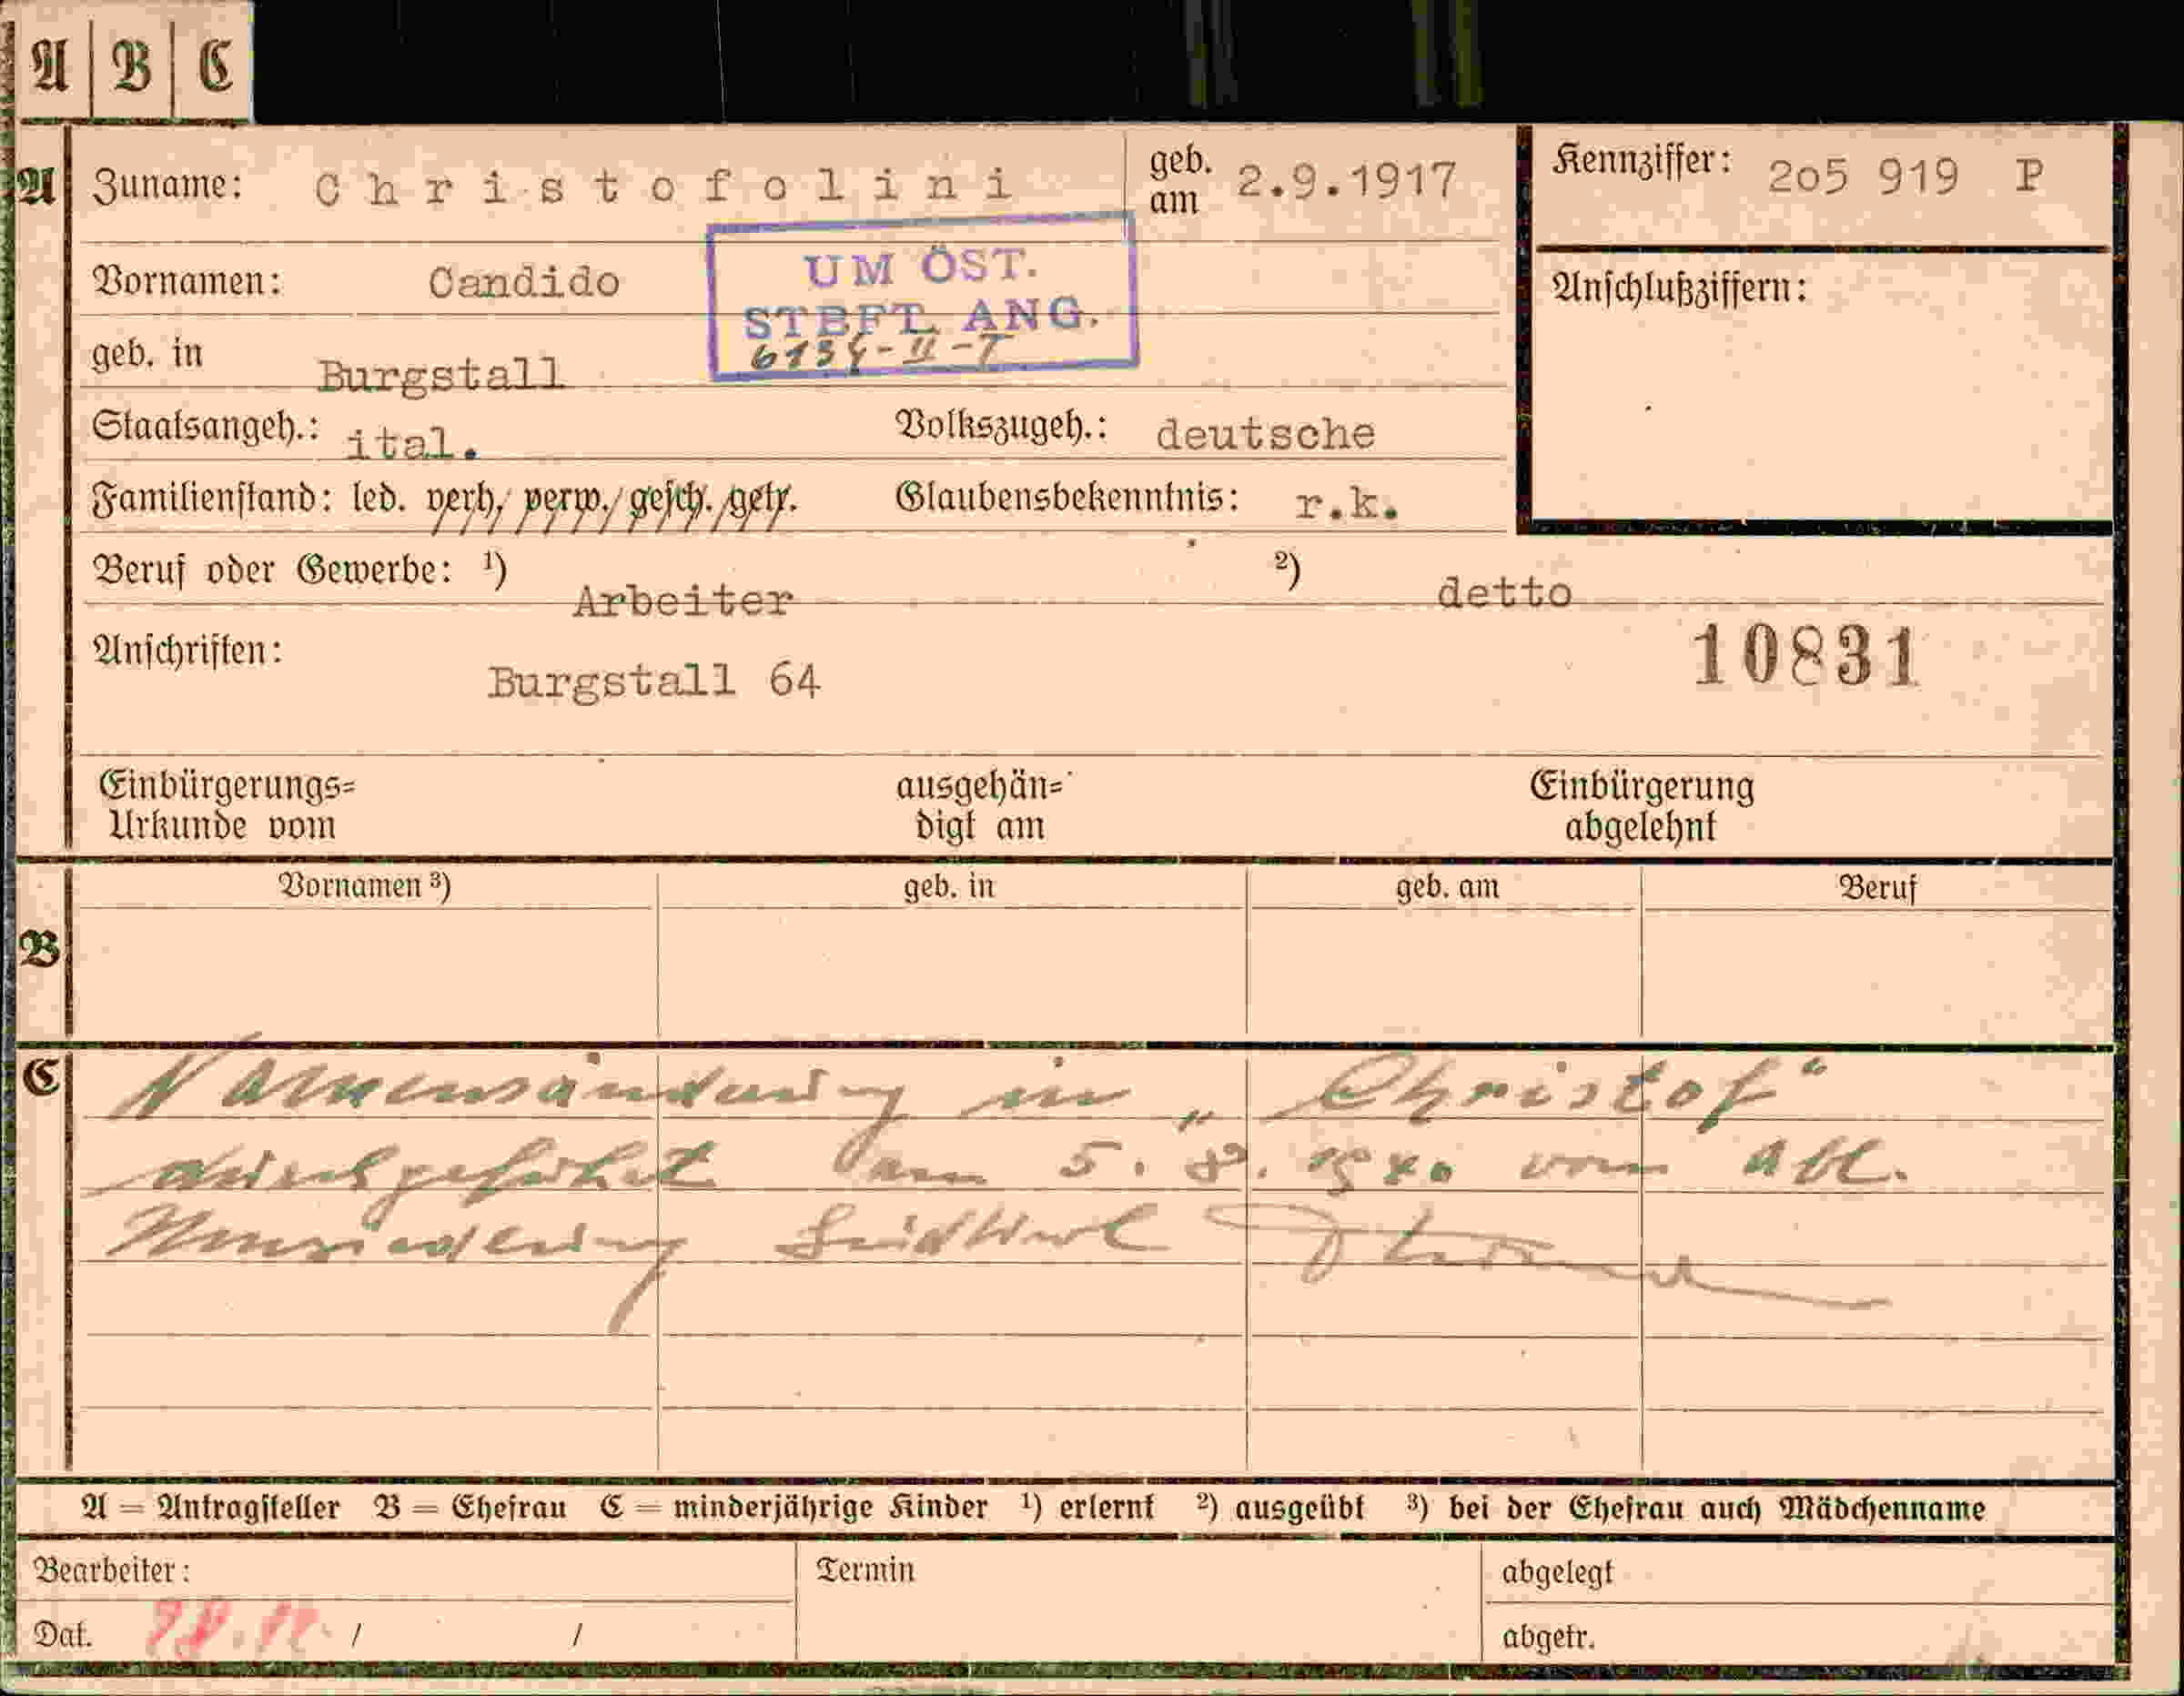 A B C
A Zuname: Christofolini geb. am 2.9.1917 Kennziffer: 2o5 919 P
Vornamen: Candido
UM ÖST.
STBFT. ANG.
Anschlußziffern:
geb. in Burgstall
Staatsangeh.: ital. Volkszugeh.: deutsche
Familienstand: led. verh./verw./gesch./getr. Glaubensbekenntnis: r.k.
Beruf oder Gewerbe: ¹) Arbeiter ²) detto
10831
Anschriften: Burgstall 64
Einbürgerungs=
Urkunde vom
ausgehän=
digt am
Einbürgerung
abgelehnt
B Vornamen ³) geb. in geb. am Beruf
C Namensänderung in „Christof“
durchgeführt am 5. 8. 1940 vom Abl.
Umsiedlung Südtirol
A = Antragsteller B = Ehefrau C = minderjährige Kinder ¹) erlernt ²) ausgeübt ³) bei der Ehefrau auch Mädchenname
Bearbeiter: Termin abgelegt
Dat. / / abgetr.